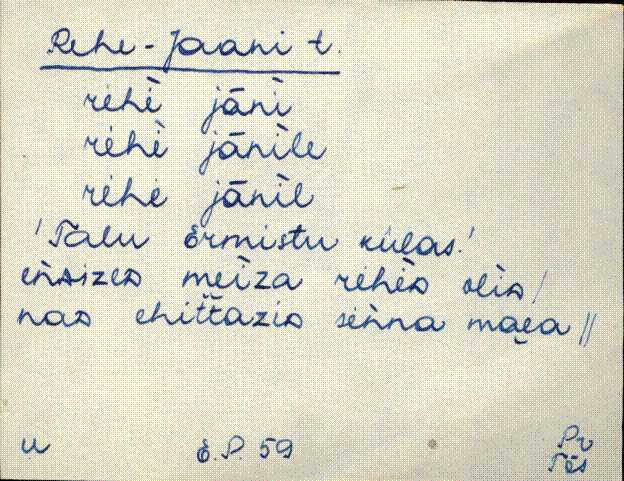 Rehe-Jaani t.
rèhè jānì
rèhè jānìle
rèhe jānìl
'Talu Ermistu külas.'
eǹsizes meìza rèhès olìs /
nas ehiťťazis sèǹna maea ||
u E.P. 59 Pv
Tõs